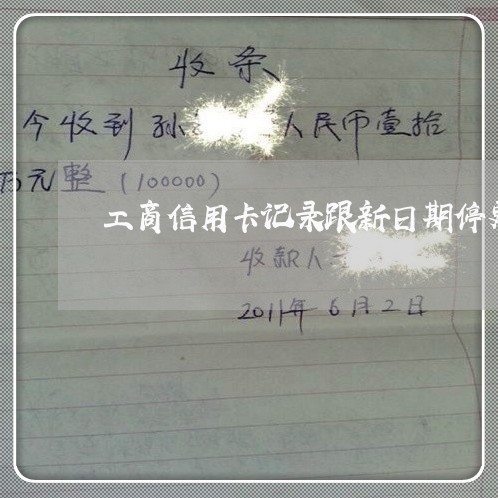 收条
今收到孙 人民币壹拾
万元整（100000）
工商信用卡记录跟新日期停
收款人
2011年6月2日